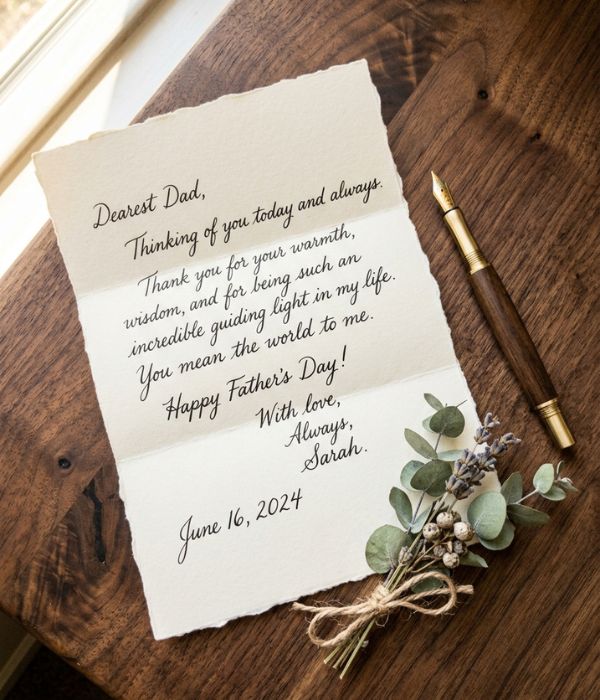 Dearest Dad,
Thinking of you today and always.
Thank you for your warmth,
wisdom, and for being such an
incredible guiding light in my life.
You mean the world to me.
Happy Father's Day!
With love,
Always,
Sarah.
June 16, 2024